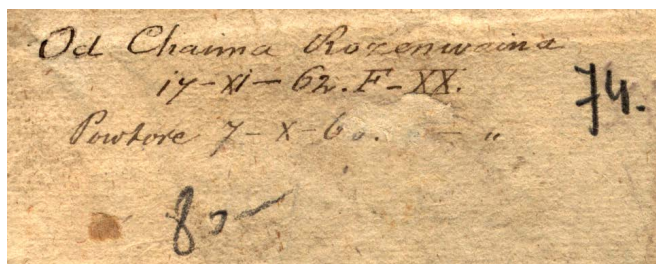 Od Chaima Rozenwaina
17-XI-62. F-XX.
74.
Powtore 7-X-60. — „
80-